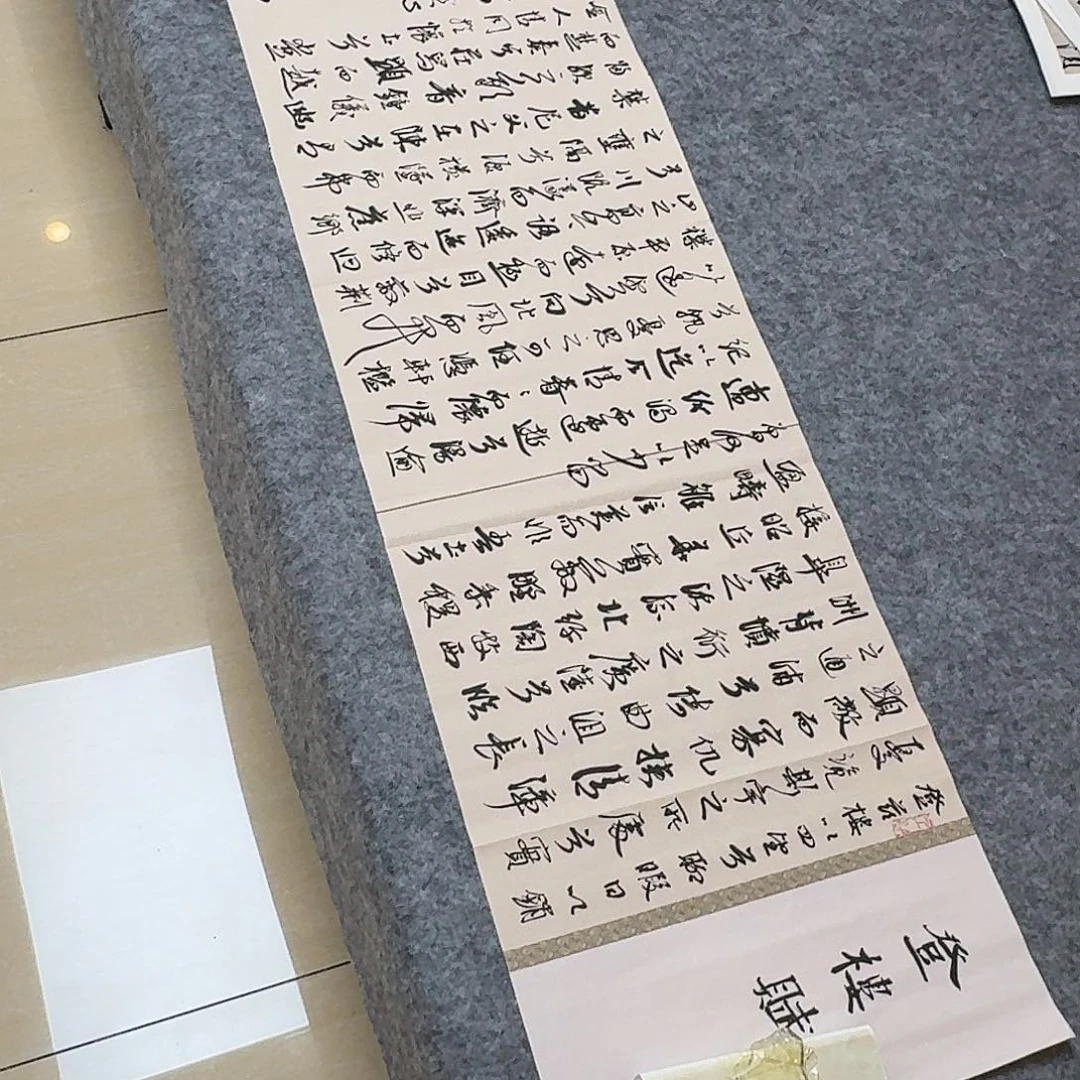 登樓賦
登茲樓以四望兮聊暇日以銷
憂覽斯宇之所處兮實
顯敞而寡仇挾清漳
之通浦兮倚曲沮之長
洲背墳衍之廣陸兮臨
皋隰之沃流北彌陶牧西
接昭丘華實蔽野黍稷
盈疇雖信美而非吾土兮
曾何足以少留
遭紛濁而遷逝兮漫逾
紀以迄今情眷〻而懷歸
兮孰憂思之可任憑軒檻
以遙望兮向北風而開
襟平原遠而極目兮蔽荊
山之高岑路逶迤而修迴
兮川既漾而濟深悲舊鄉
之壅隔兮涕橫墜而弗
禁昔尼父之在陳兮
歟之歎音鐘儀幽
而楚奏兮莊舄顯而越
吟人情同於懷土兮豈